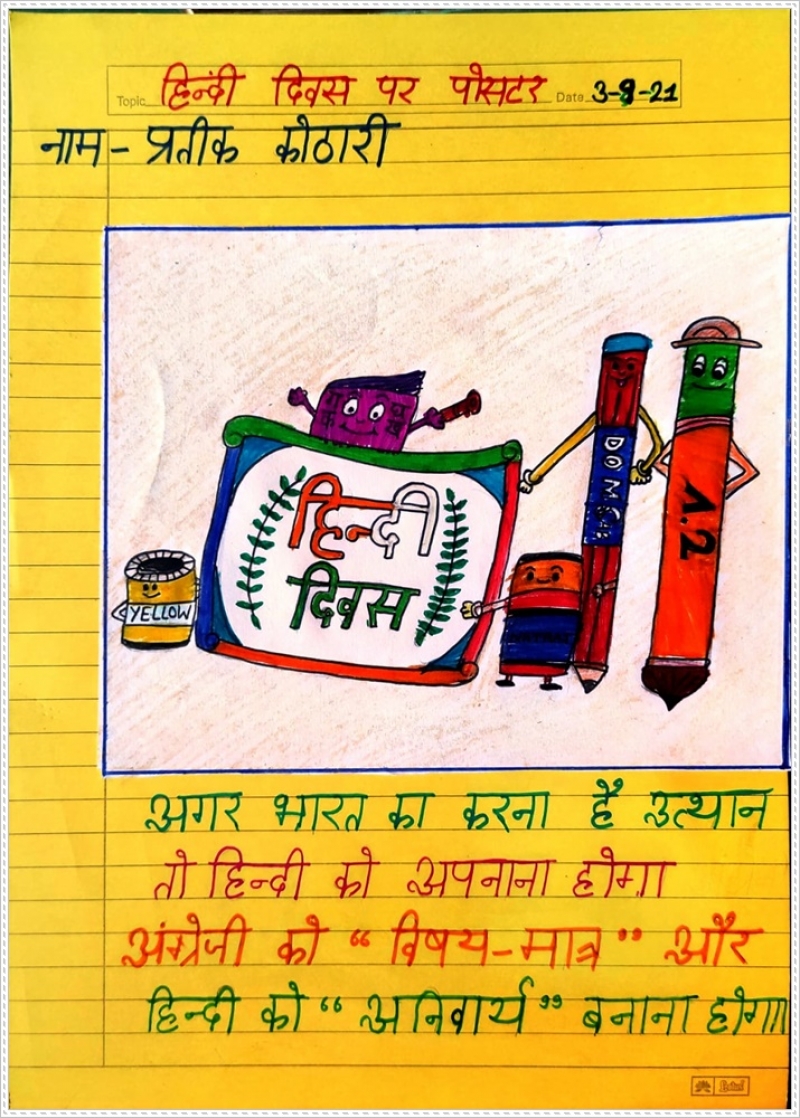 Topic हिन्दी दिवस पर पोसटर Date 3-9-21
नाम - प्रतीक कोठारी
हिन्दी
दिवस
YELLOW
DOMS
A.2
अगर भारत का करना है उत्थान
तो हिन्दी को अपनाना होगा
अंग्रेजी को “ विषय-मात्र ” और
हिन्दी को “ अनिवार्य ” बनाना होगा।